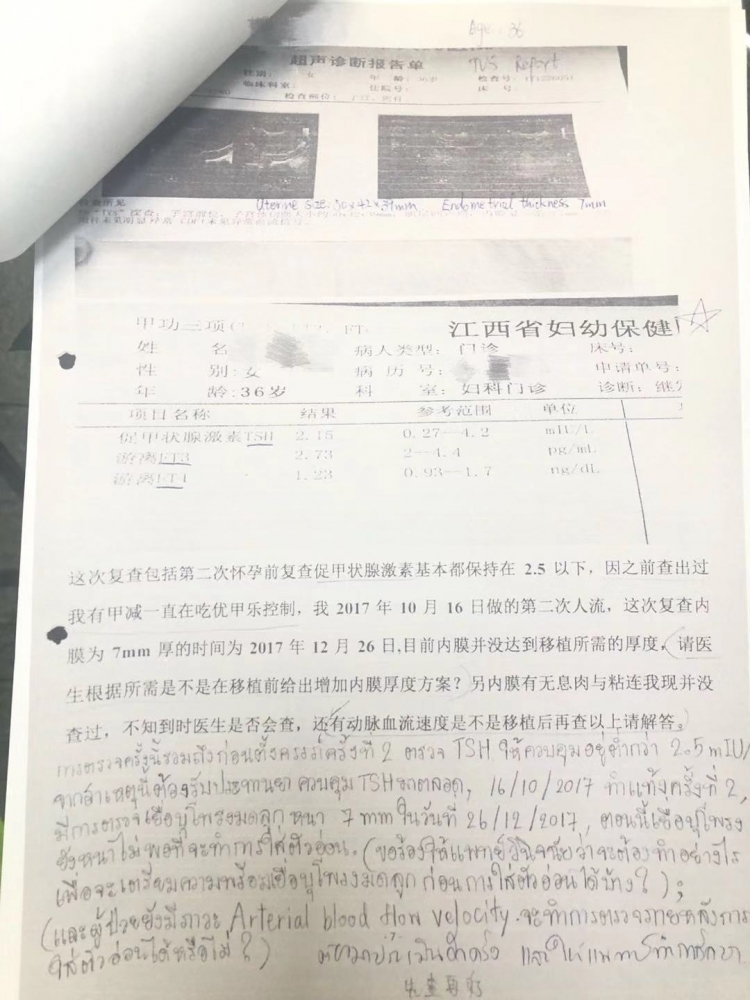 Age : 36
超声诊断报告单 TVS Report
性别: 女 年 龄: 36岁 检查号:
临床科室: 住院号: 床 号:
检查部位: 子宫、附件
检查所见 Uterine size: 50x42x39mm Endometrial thickness 7mm
甲功三项( FT 江西省妇幼保健
姓 名 病人类型: 门诊 床号:
性 别:女 病 历 号: 申请单号:
年 龄:36岁 科 室: 妇科门诊 诊断:
项目名称 结果 参考范围 单位
促甲状腺激素TSH 2.15 0.27--4.2 mIU/L
游离FT3 2.73 2--4.4 pg/mL
游离FT4 1.23 0.93--1.7 ng/dL
这次复查包括第二次怀孕前复查促甲状腺激素基本都保持在 2.5 以下，因之前查出过
我有甲减一直在吃优甲乐控制，我 2017 年 10 月 16 日做的第二次人流，这次复查内
膜为 7mm 厚的时间为 2017 年 12 月 26 日,目前内膜并没达到移植所需的厚度，请医
生根据所需是不是在移植前给出增加内膜厚度方案？另内膜有无息肉与粘连我现并没
查过，不知到时医生是否会查，还有动脉血流速度是不是移植后再查以上请解答。
การตรวจครั้งนี้รวมถึงก่อนตั้งครรภ์ครั้งที่ 2 ตรวจ TSH ให้ควบคุมอยู่ต่ำกว่า 2.5 mIU/
จากสาเหตุนี้ต้องรับประทานยา ควบคุม TSH มาตลอด, 16/10/2017 ทำแท้งครั้งที่ 2,
มีการตรวจเยื่อบุโพรงมดลูก หนา 7 mm ในวันที่ 26/12/2017, ตอนนี้เยื่อบุโพรง
ยังหนาไม่พอที่จะทำการใส่ตัวอ่อน. (ขอร้องให้แพทย์วินิจฉัยว่าจะต้องทำอย่างไร
เพื่อจะเตรียมความพร้อมเยื่อบุโพรงมดลูก ก่อนการใส่ตัวอ่อนได้บ้าง ?) ;
(และผู้ป่วยยังมีภาวะ Arterial blood flow velocity จะทำการตรวจภายหลังการ
ใส่ตัวอ่อนได้หรือไม่ ?)